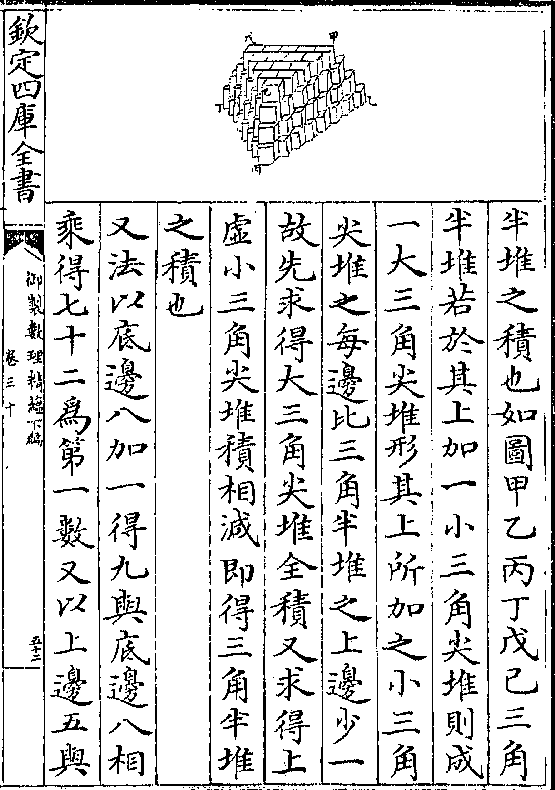 半堆之積也如圖甲乙丙丁戊己三角
半堆若於其上加一小三角尖堆則成
一大三角尖堆形其上所加之小三角
尖堆之每邊比三角半堆之上邊少一
故先求得大三角尖堆全積又求得上
虛小三角尖堆積相減即得三角半堆
之積也
又法以底邊八加一得九與底邊八相
乘得七十二為第一數又以上邊五與
欽定四庫全書
御製數理精蘊下編
卷三十
五十二
甲
丙